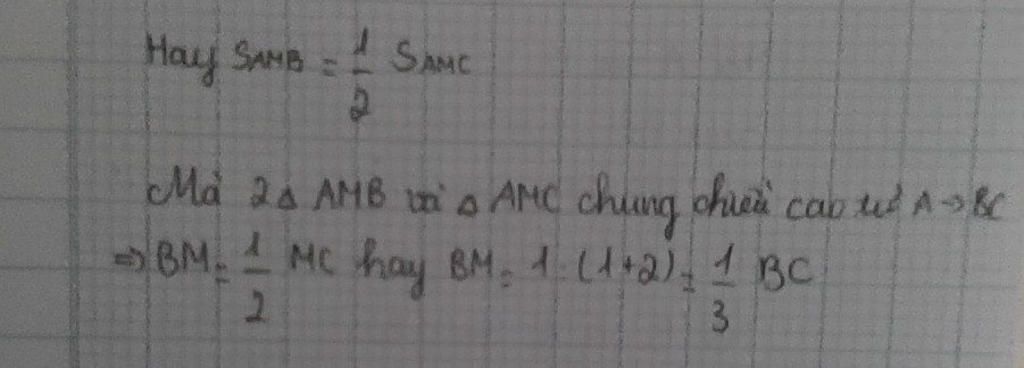 Hay SAMB = 1/2 SAMC
Mà 2Δ AMB và Δ AMC chung chiều cao từ A → BC
⇒ BM = 1/2 MC hay BM = 1 : (1+2) = 1/3 BC